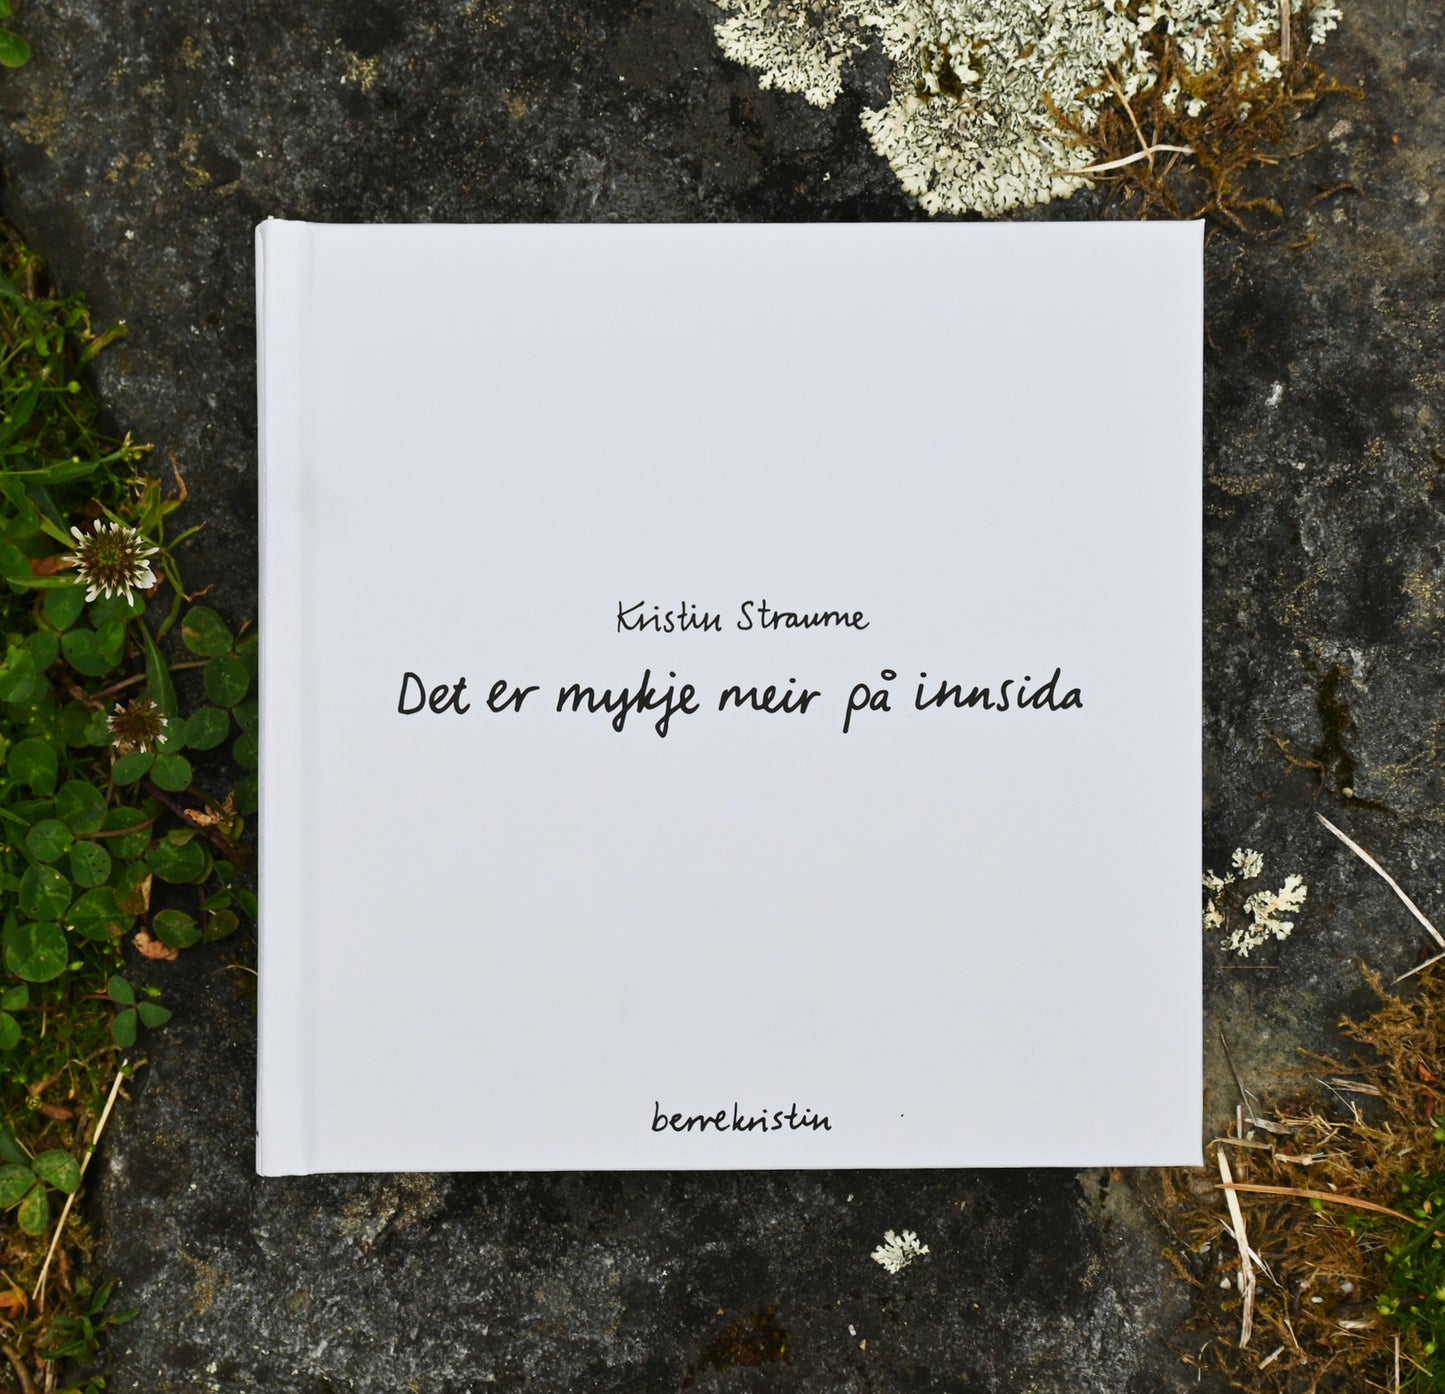 Kristin Straume
Det er mykje meir på innsida
berrekristin